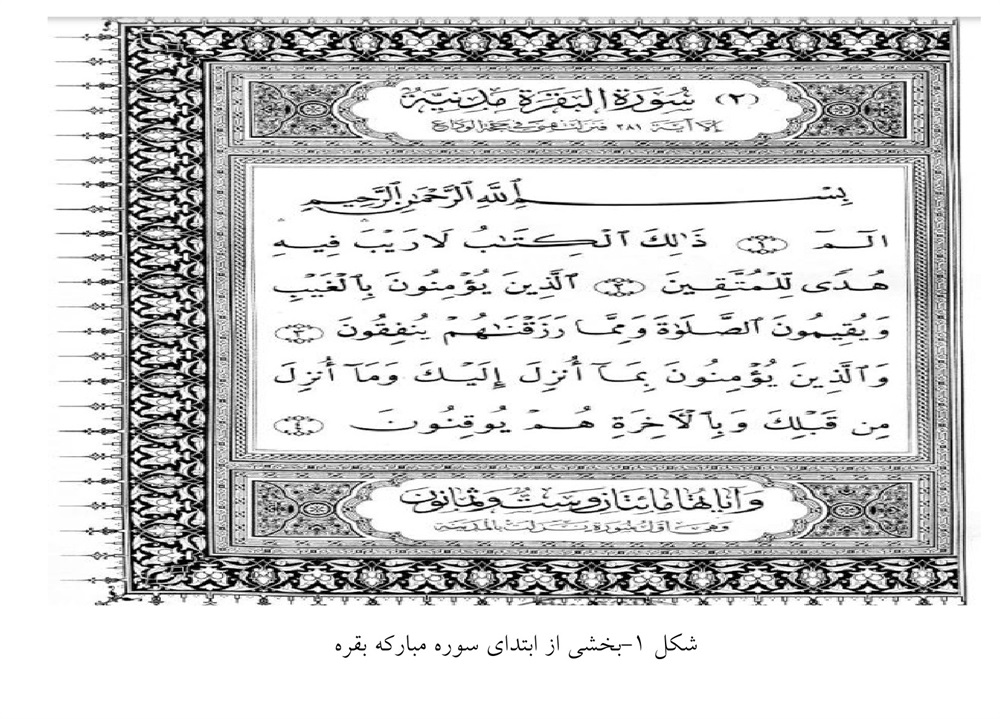 (٢) سُورَة الْبَقَرَة مَدَنِيَّة
إلا آية ٢٨١ فنزلت بمنى في حجة الوداع
بِسْمِ اللَّهِ الرَّحْمَٰنِ الرَّحِيمِ
الٓمٓ ١ ذَٰلِكَ ٱلْكِتَٰبُ لَا رَيْبَ فِيهِ
هُدًى لِّلْمُتَّقِينَ ٢ ٱلَّذِينَ يُؤْمِنُونَ بِٱلْغَيْبِ
وَيُقِيمُونَ ٱلصَّلَوٰةَ وَمِمَّا رَزَقْنَٰهُمْ يُنفِقُونَ ٣
وَٱلَّذِينَ يُؤْمِنُونَ بِمَآ أُنزِلَ إِلَيْكَ وَمَآ أُنزِلَ
مِن قَبْلِكَ وَبِٱلْأٓخِرَةِ هُمْ يُوقِنُونَ ٤
وَآيَاتُهَا مِائَتَانِ وَسِتٌّ وَثَمَانُونَ
وهي أول سورة نزلت بالمدينة
شکل ۱-بخشی از ابتدای سوره مبارکه بقره